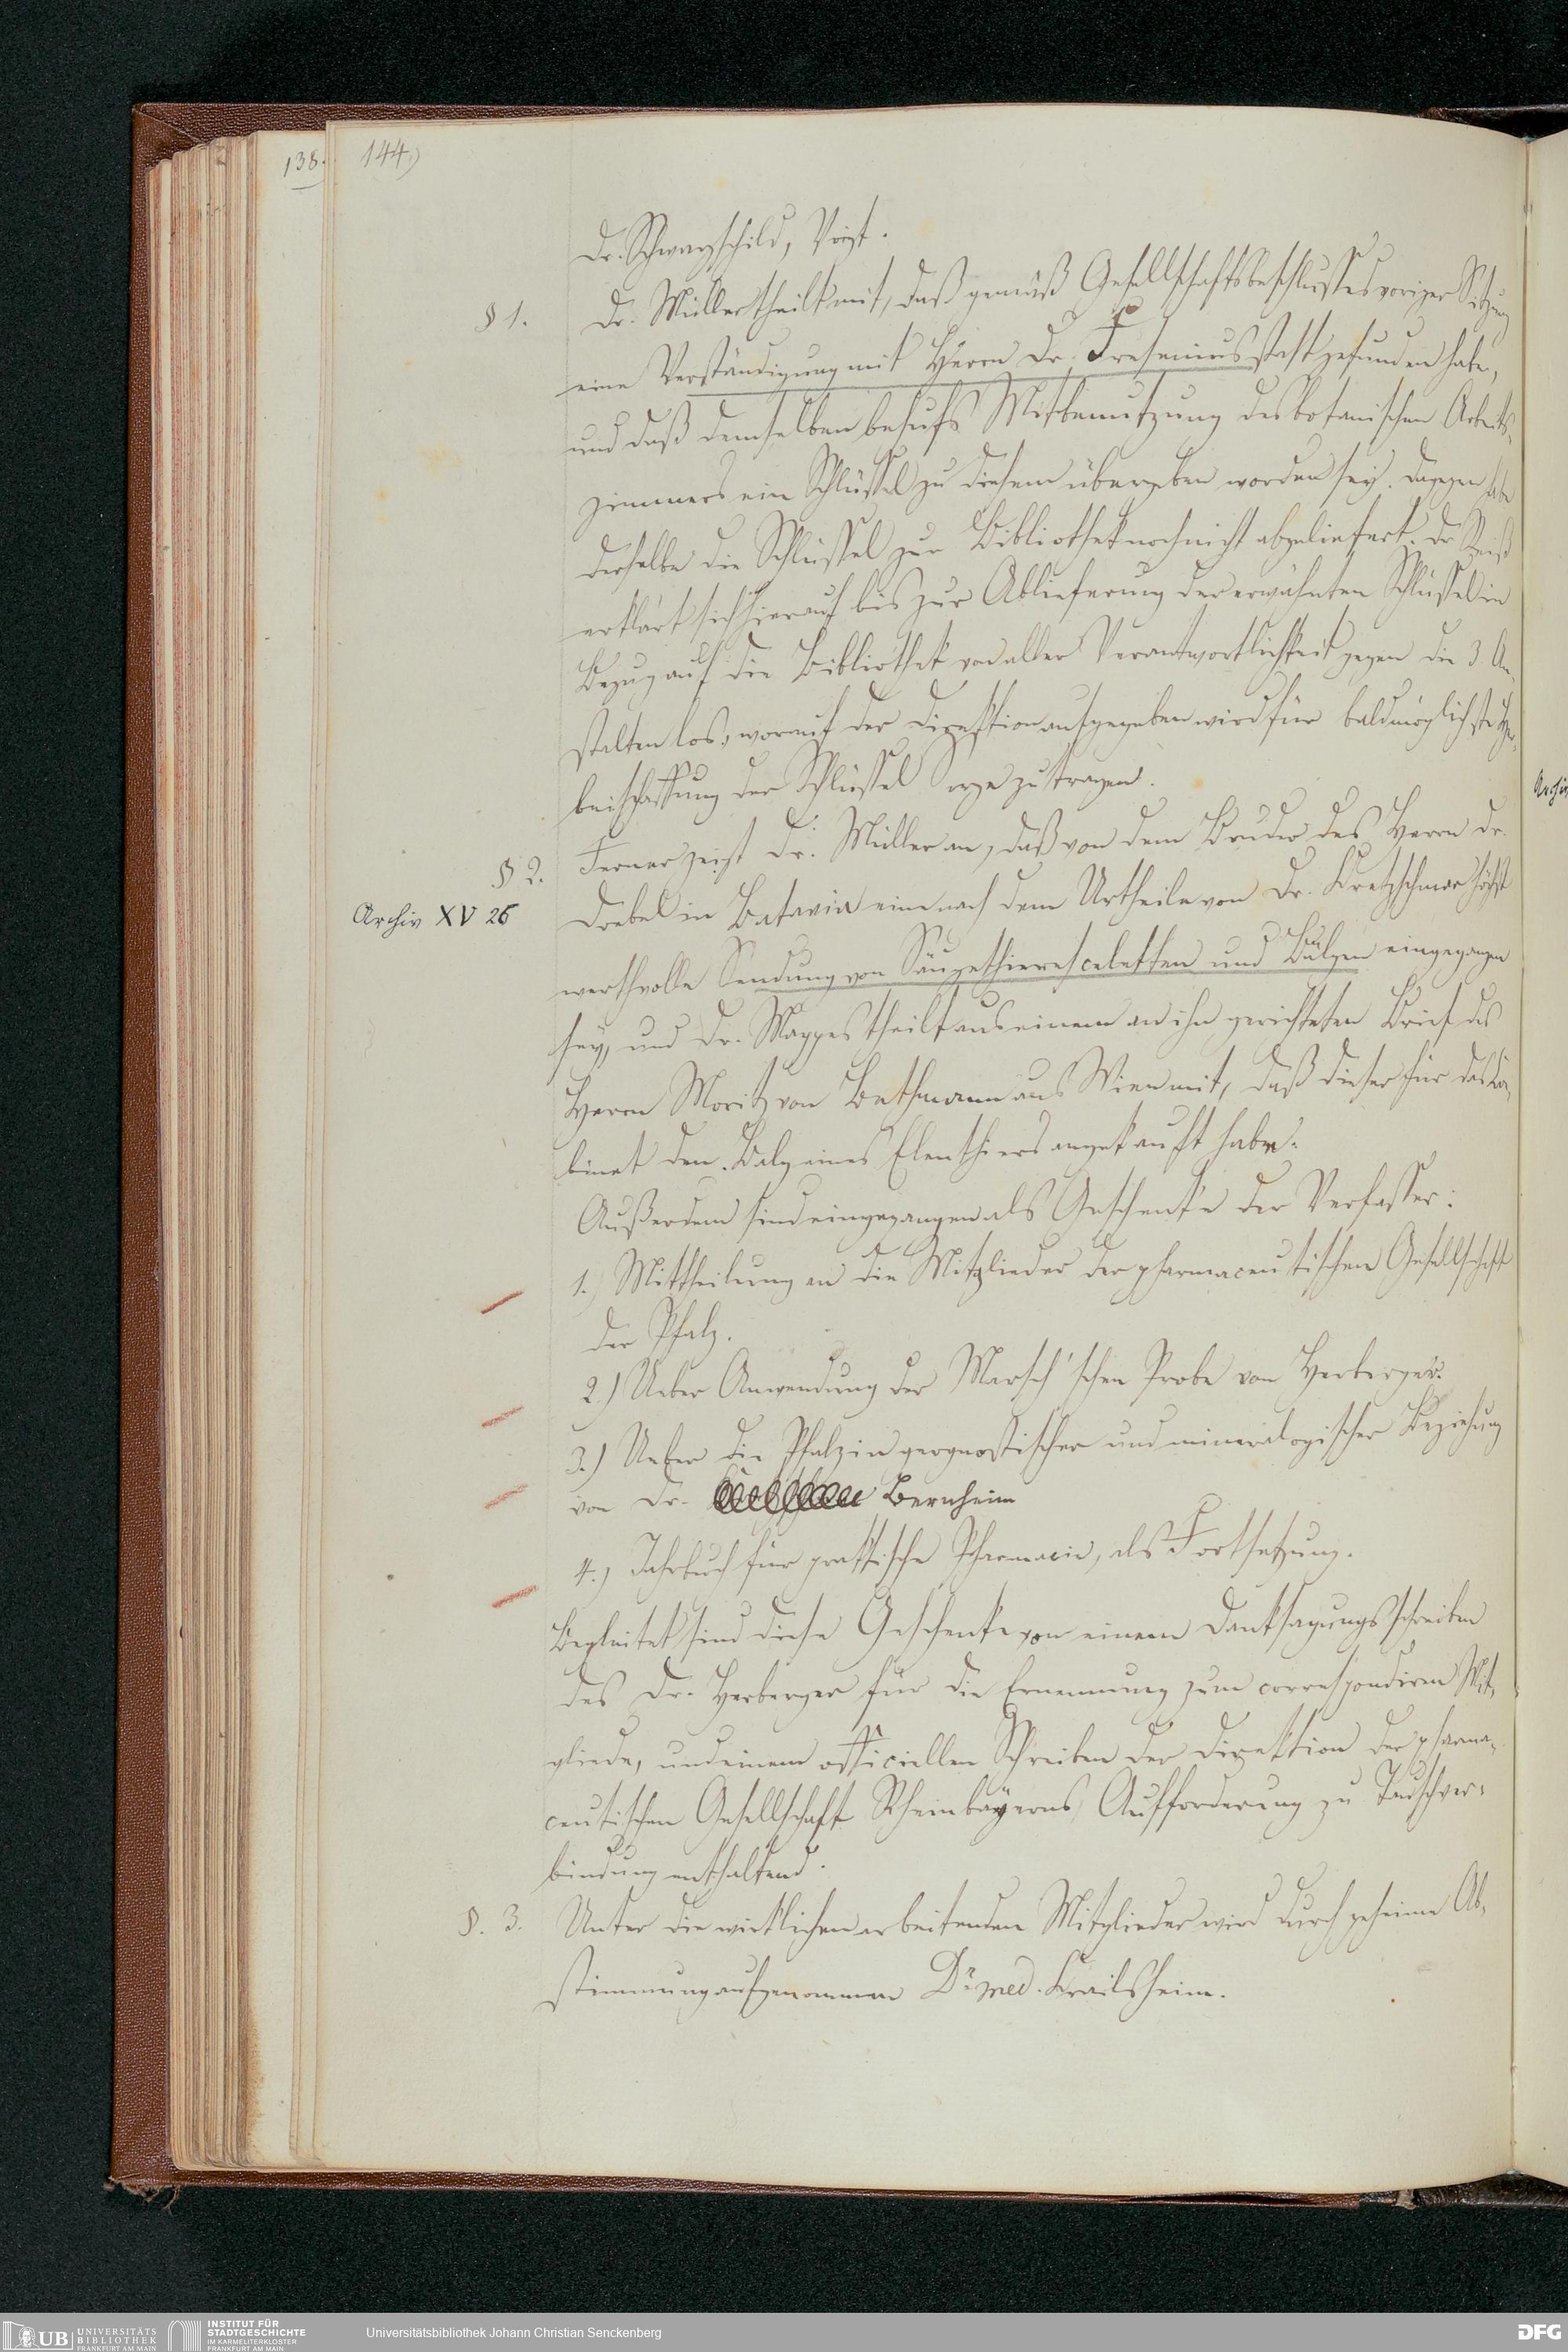 138.
144.)
Dr. Schwarzschild, Voigt.
§ 1. Dr. Müller theilt mit, daß gemäß Gesellschaftsbeschlusses voriger Sitzung
eine Verständigung mit Herrn Dr. Fresenius statt gefunden habe,
und daß demselben behufs Mitbenutzung des botanischen Arbeits-
zimmers ein Schlüssel zu diesem übergeben worden sey. Dagegen habe
derselbe die Schlüssel zur Bibliothek noch nicht abgeliefert. Dr Reiß
erklärt sich hierauf bis zur Ablieferung der erwähnten Schlüssel in
Bezug auf die Bibliothek von aller Verantwortlichkeit gegen die 3 An-
stalten los, worauf der Direktion aufgegeben wird für baldmöglichste Her-
beischaffung der Schlüssel Sorge zu tragen.
§ 2. Ferner zeigt Dr. Müller an, daß von dem Bruder des Herrn Dr.
Archiv XV 26
Drebel in Batavia eine nach dem Urtheile von Dr. Kretzschmar höchst
werthvolle Sendung von Säugethiersceletten und Bälgen eingegangen
sey, und Dr. Mappes theilt aus einem an ihn gerichteten Brief des
Herrn Moritz von Bethmann aus Wien mit, daß dieser für das Ca-
binet den Balg eines Elenthiers angekauft habe.
Außerdem sind eingegangen als Geschenke der Verfasser:
1.) Mittheilung an die Mitglieder der pharmaceutischen Gesellschaft
der Pfalz.
2.) Ueber Anwendung der Marsch'schen Probe von Herberger.
3.) Ueber die Pfalz in geognostischer und mineralogischer Beziehung
von Dr. Bernheim
4.) Jahrbuch für praktische Pharmacie, als Fortsetzung.
Begleitet sind diese Geschenke von einem Danksagungsschreiben
des Dr. Herberger für die Ernennung zum correspondiren Mit-
gliede, und einem officiellen Schreiben der Direktion der pharma-
ceutischen Gesellschaft Rheinbayerns, Aufforderung zu Tauschver-
bindung enthaltend.
§. 3. Unter die wirklichen arbeitenden Mitglieder wird durch geheime Ab-
stimmung aufgenommen Dr med. Krailsheim.
Archiv
UB UNIVERSITÄTS BIBLIOTHEK FRANKFURT AM MAIN
INSTITUT FÜR STADTGESCHICHTE IM KARMELITERKLOSTER FRANKFURT AM MAIN
Universitätsbibliothek Johann Christian Senckenberg
DFG